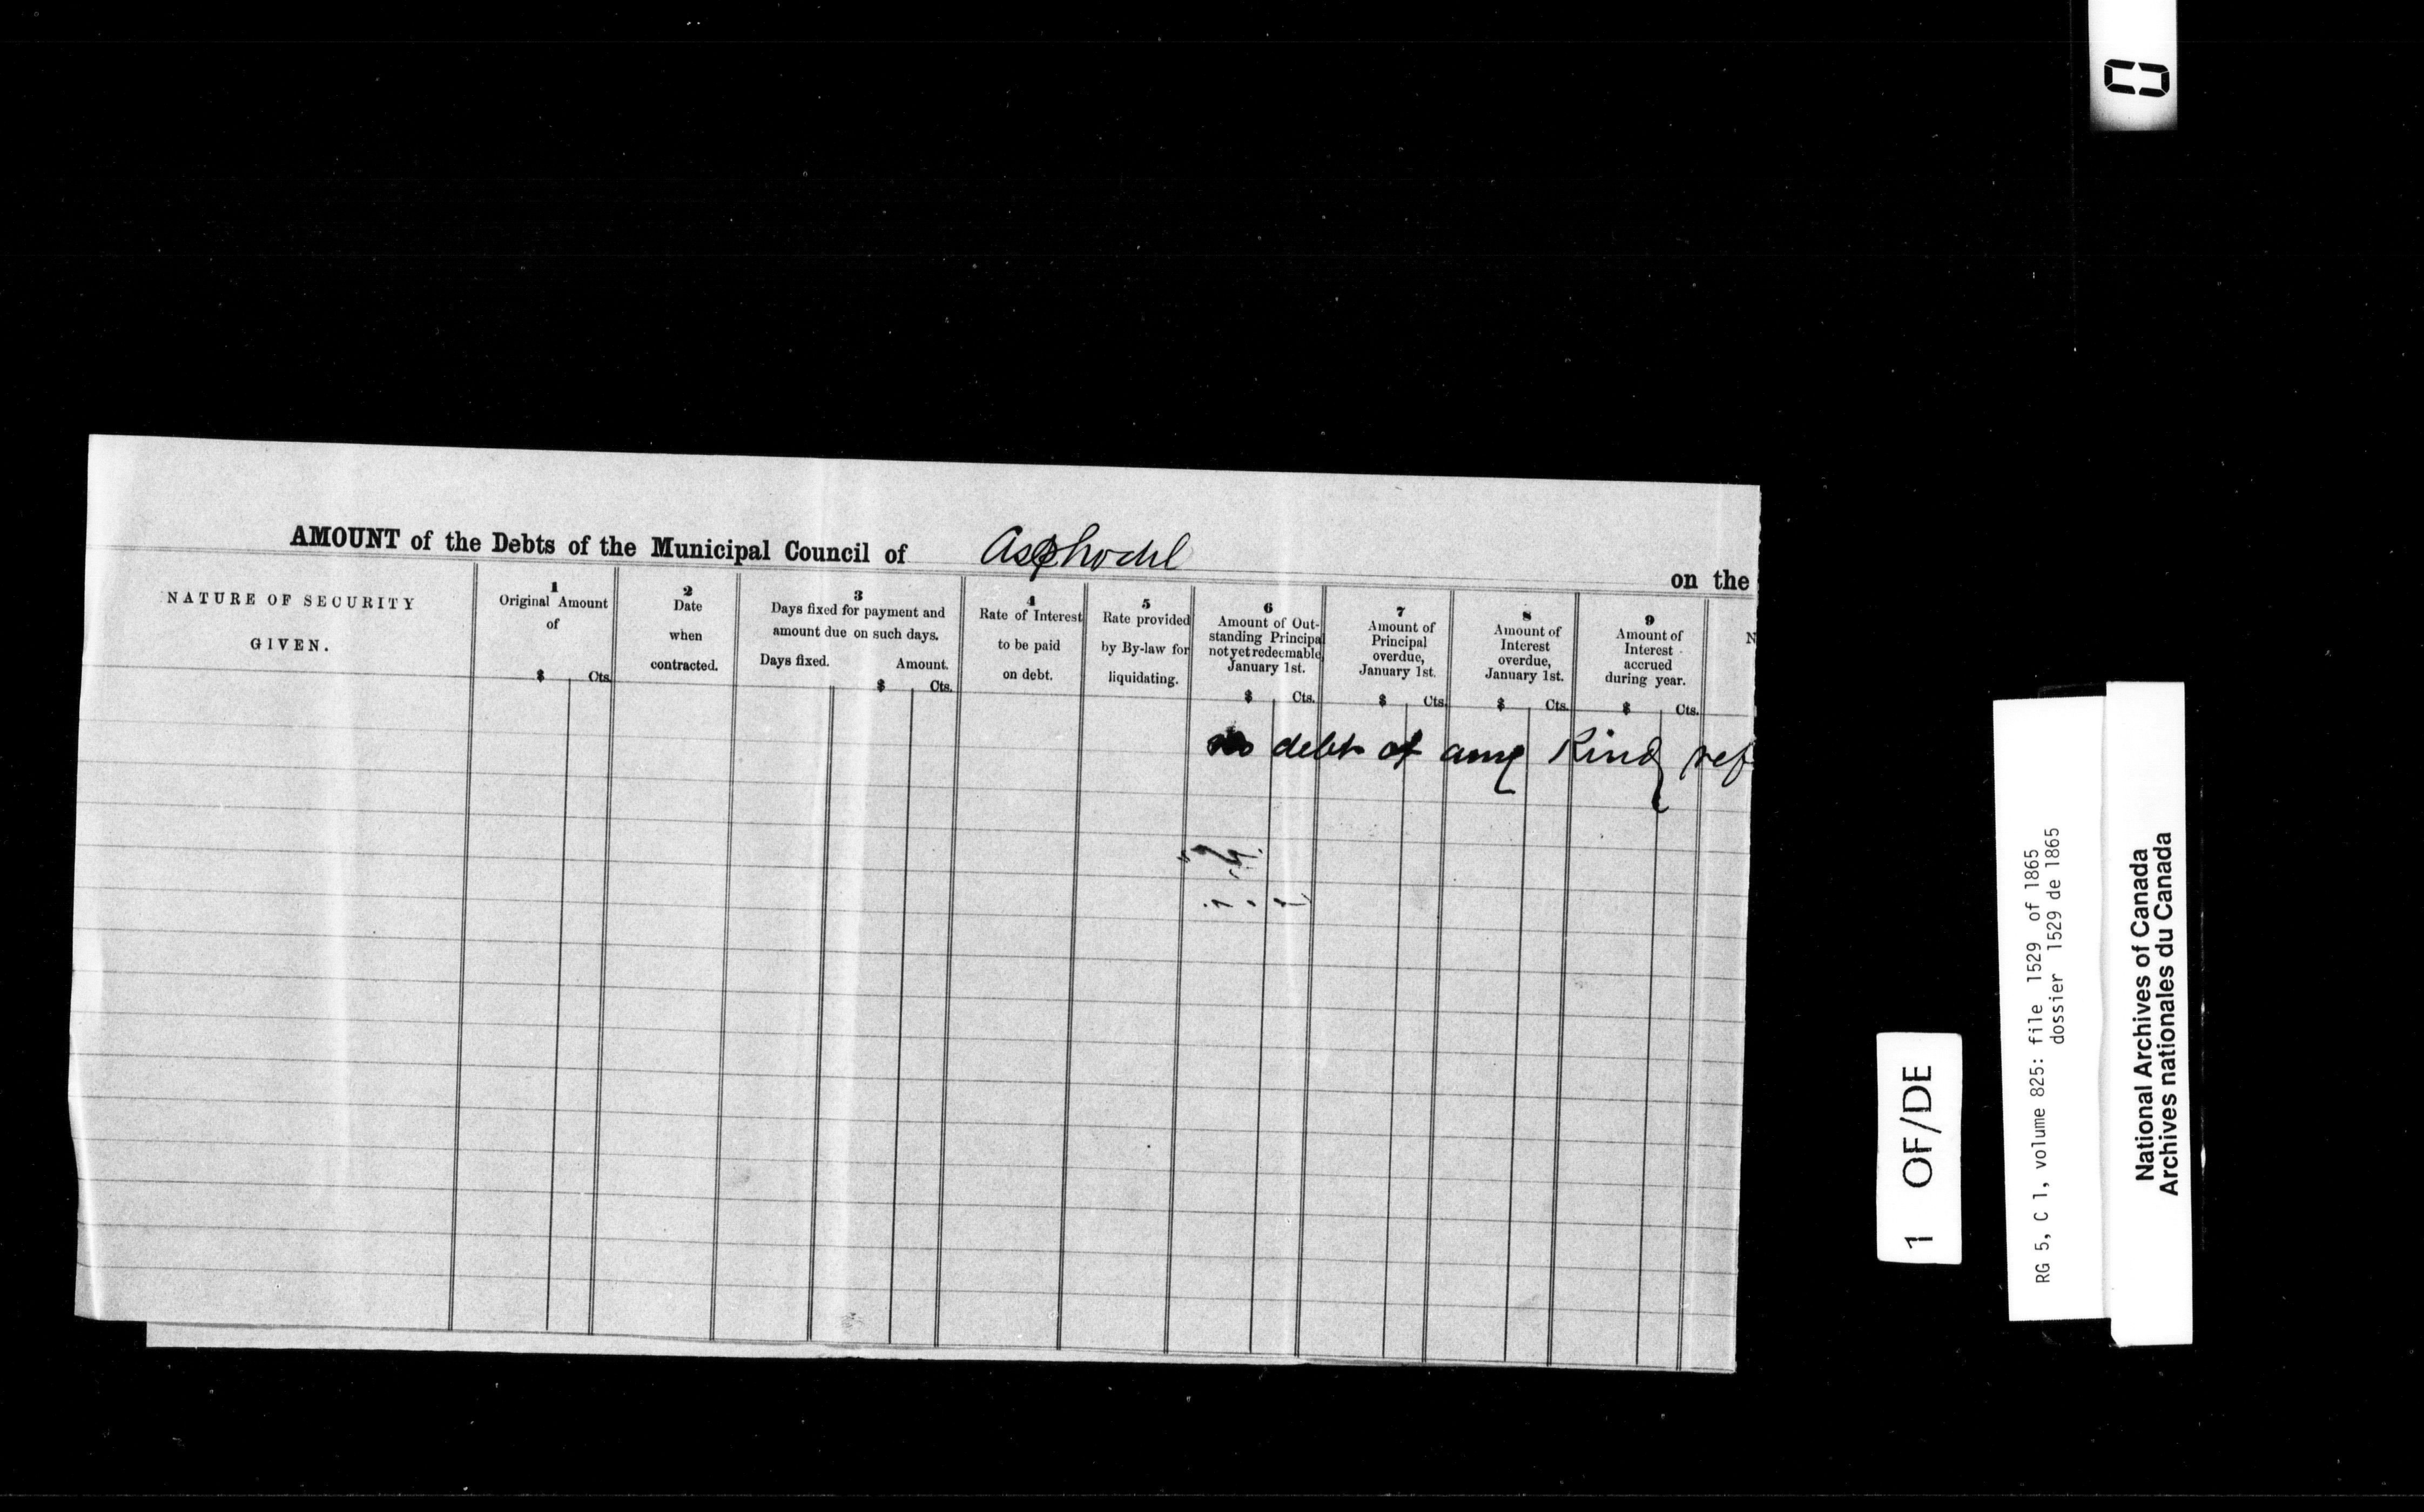 AMOUNT of the Debts of the Municipal Council of Asphodel on the
NATURE OF SECURITY
GIVEN.
1
Original Amount
of
$ Cts.
2
Date
when
contracted.
3
Days fixed for payment and
amount due on such days.
Days fixed. Amount.
$ Cts.
4
Rate of Interest
to be paid
on debt.
5
Rate provided
by By-law for
liquidating.
6
Amount of Out-
standing Principal
not yet redeemable,
January 1st.
$ Cts.
7
Amount of
Principal
overdue,
January 1st.
$ Cts.
8
Amount of
Interest
overdue,
January 1st.
$ Cts.
9
Amount of
Interest
accrued
during year.
$ Cts.
N
no debt of any Kind
1 OF/DE
RG 5, C 1, volume 825: file 1529 of 1865
dossier 1529 de 1865
National Archives of Canada
Archives nationales du Canada